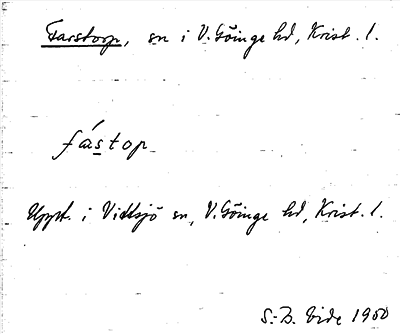 Farstorp, sn i V. Göinge hd, Krist. l.
fástop
Uppt. i Vittsjö sn, V. Göinge hd, Krist. l.
S.-B. Vide 1950